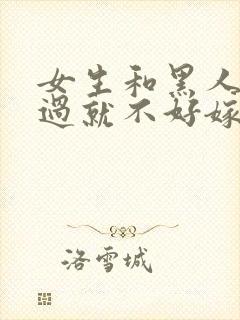 女生和黑人
过就不好嫁
洛雪城